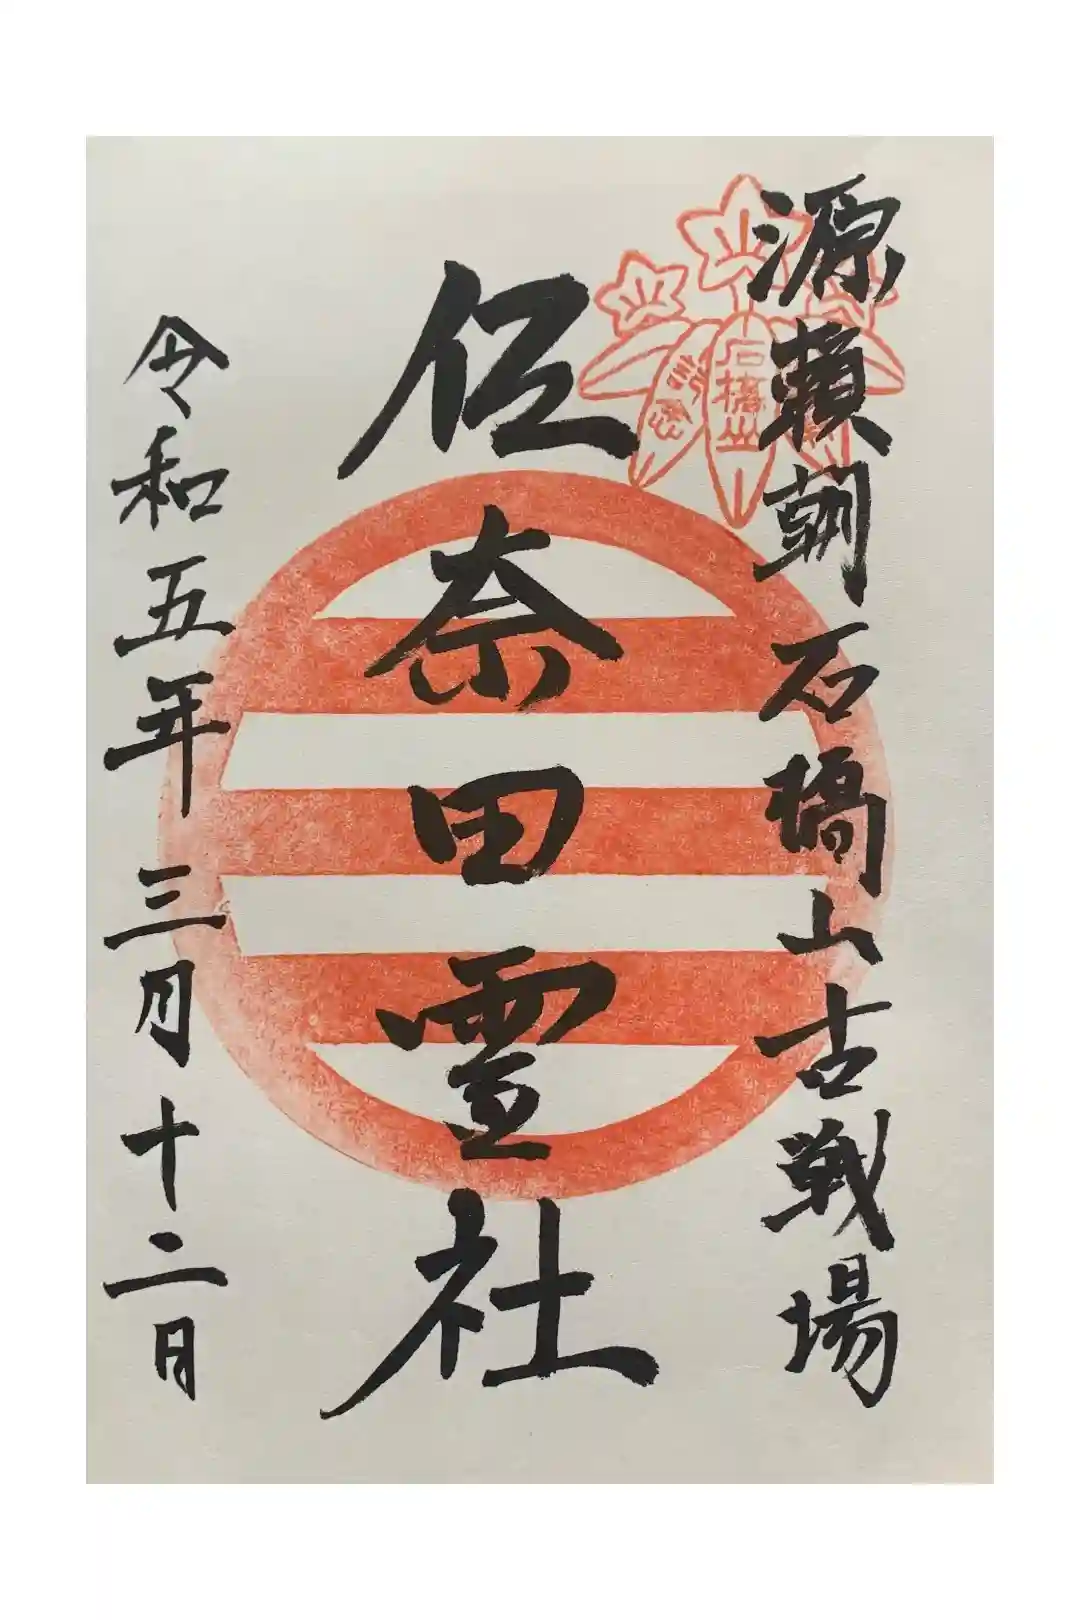 源頼朝石橋山古戦場
石橋山
佐奈田霊社
令和五年三月十二日